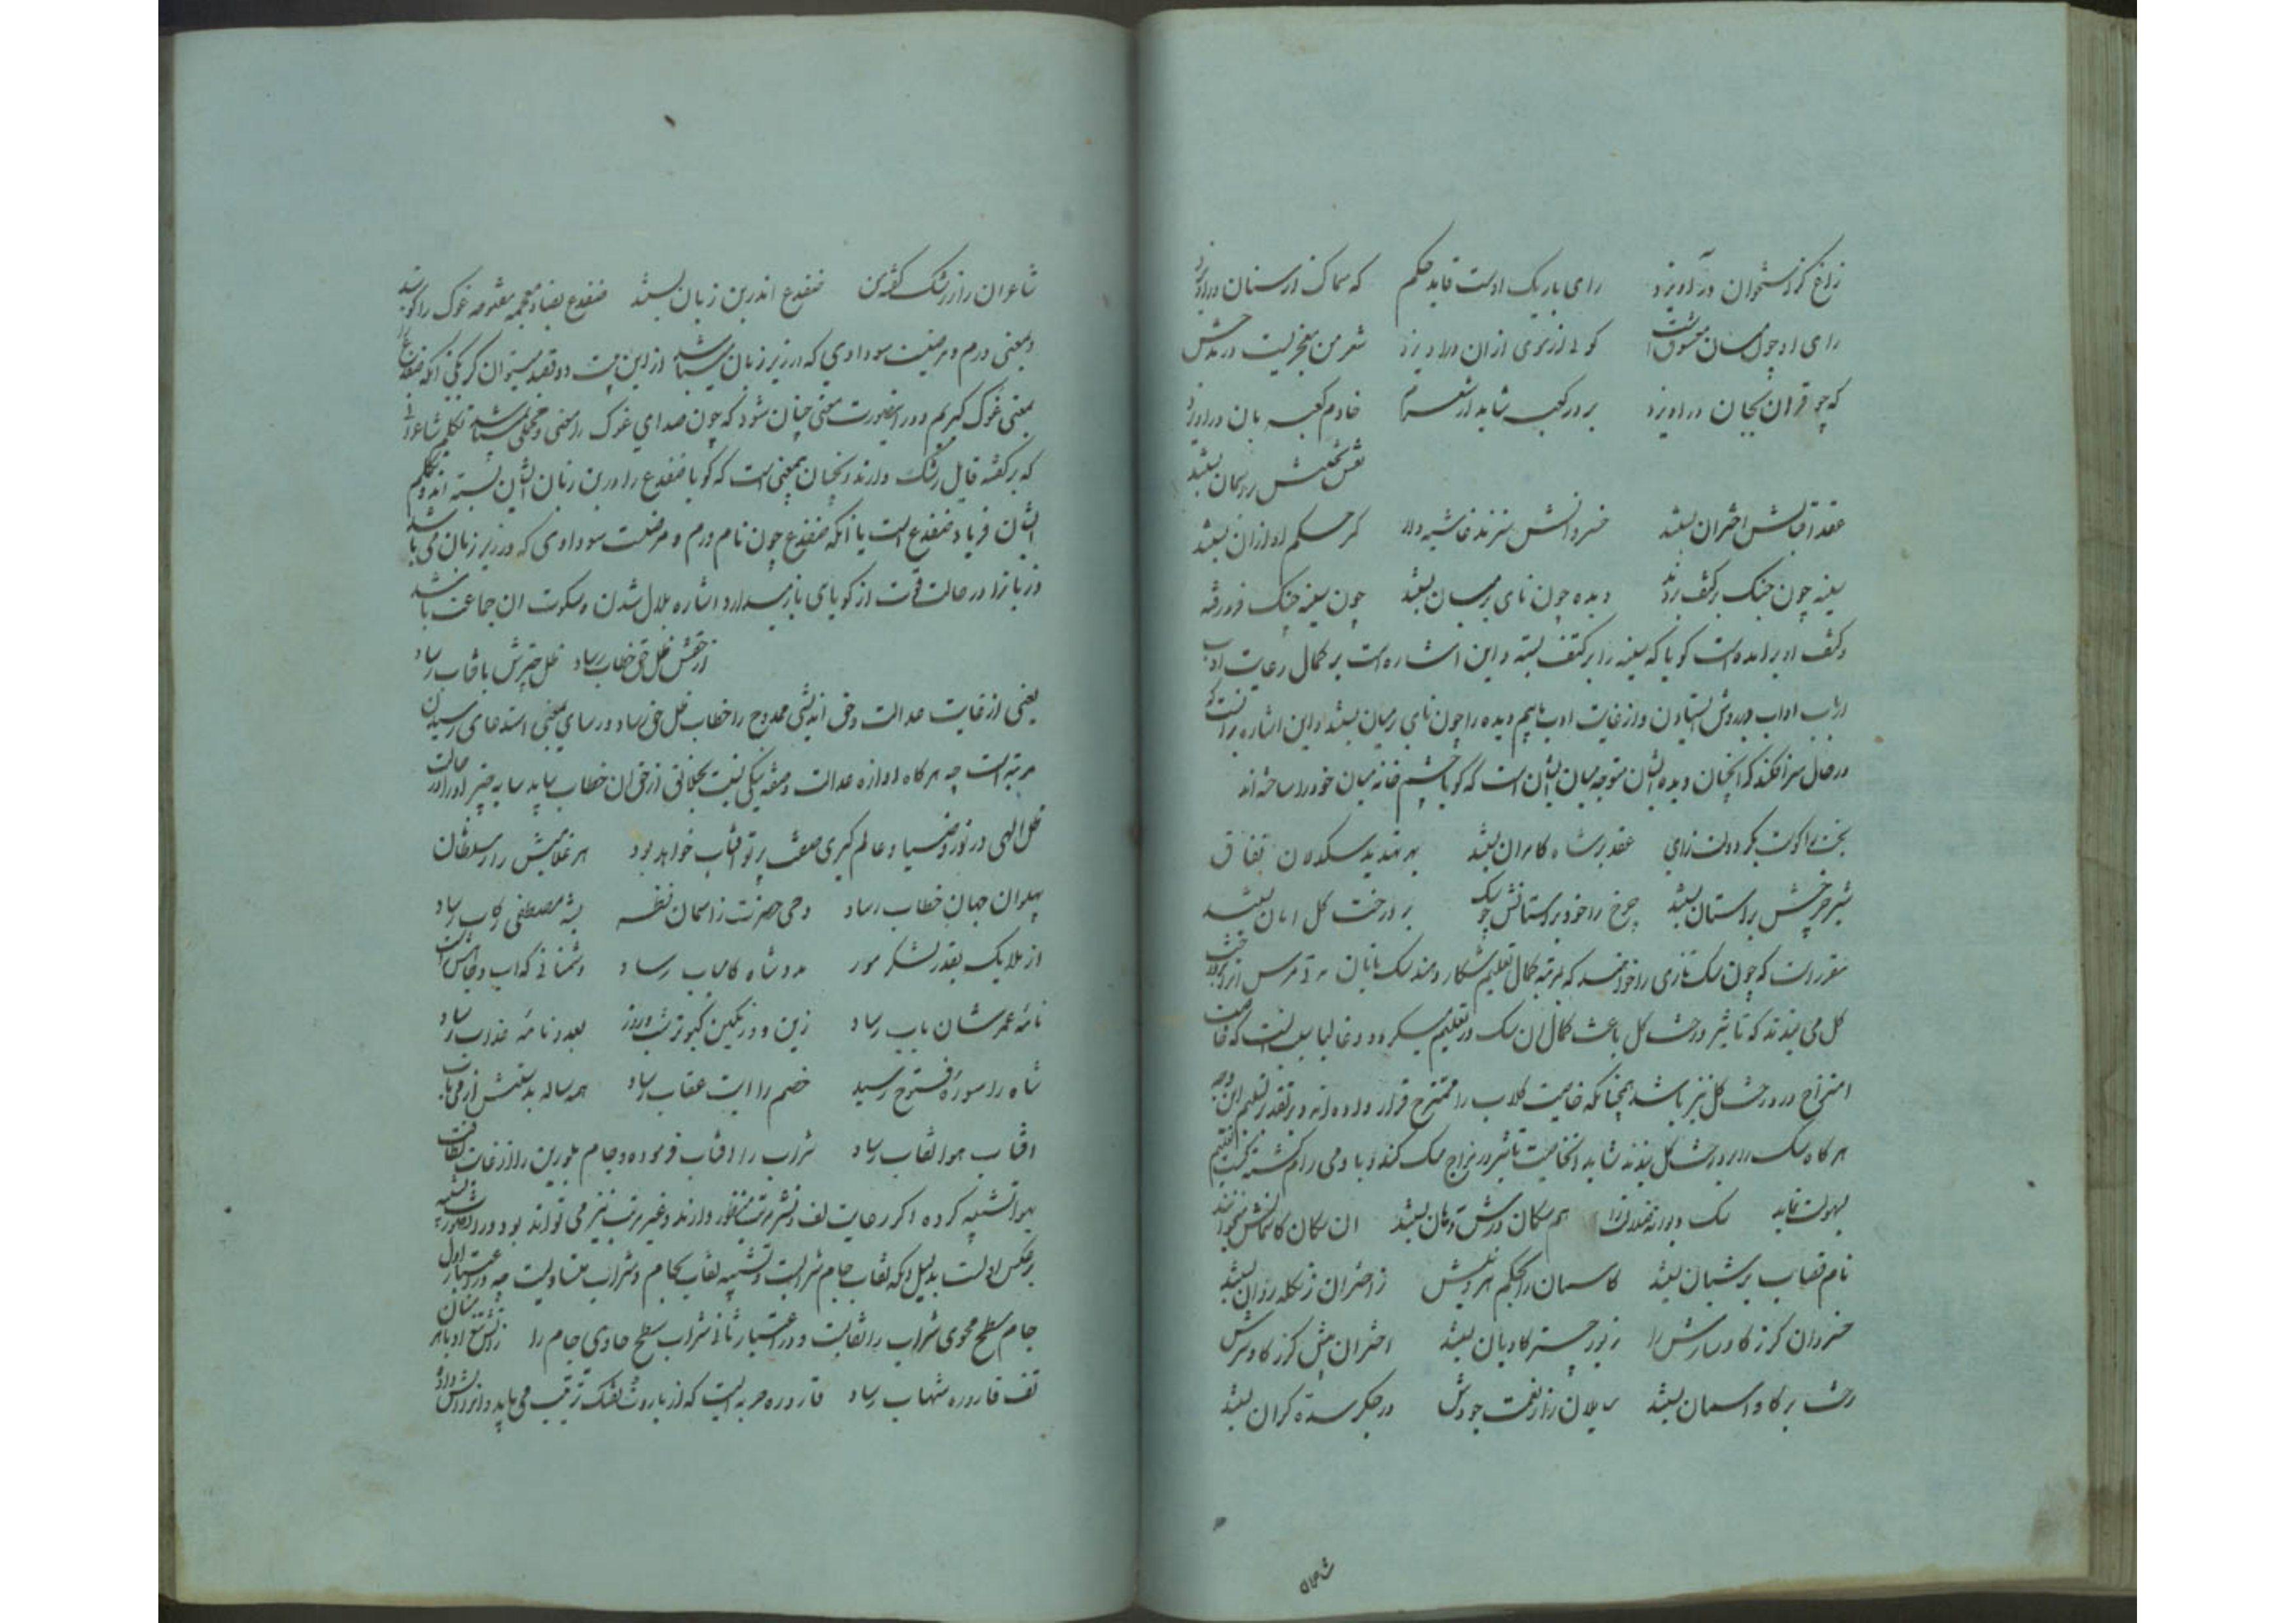 زاغ کز استخوان درآویزد رای باریک اوست قاید حکم که سماک از سنان درآویزد
رای او چون میان معشوق است کوه از موی ازان درآویزد شعر من معجزیست در مدحش
که چو قران بجان درآویزد بر در کعبه شاید ار شعرم خادم کعبه بان درآویزد
نقش بختش ریسمان بستند
عقد اقبالش اختران بستند خسروانش سزند غاشیه دار کز حسکم او ازان بستند
سینه چون چنگ بر کتف بردند دیده چون نای بر میان بستند چون سینه چنگ فرو رفته
و کتف او برآمده است گویا که سینه را بر کتف بسته و این اشاره است بر کمال رعایت ادب
ارباب اداب در روش ایستادن و از غایت ادب تا بیم دیده را چون نای بر میان بستند و این اشاره بر آنست که
در حال سرافکندگی آنچنان دیده ایشان متوجه میان ایشان است که گویا چشم خانه میان خود را ساخته اند
بخت را کوست بکر دولت زای عقد بر شاه کامران بستند بهر تهدید سگدلان نفاق
شیر چرخش بر آستان بستند چرخ را خود بر آستانش چو سگ بر درخت گل امان بستند
مقرر است که چون سگ تازی را خواهند که بمرتبه کمال تعلیم شکار دهند سگ بانان مدتی مرس او را بر درخت
گل می بندند که تاثیر درخت گل باعث کمال آن سگ در تعلیم میگردد و غالبا سبب آنست که خاصیت
امتزاج در درخت گل نیز باشد همچنانکه خاصیت گلاب را ممتزج قرار داده اند و بر تقدیر تسلیم این وجه
هرگاه سگ را بر درخت گل بندند شاید آن خاصیت تاثیر در مزاج سگ کند و با آدمی رام گشته کسب تعلیم
بسهولت نماید سگ دیوانه ضلالت را هم سگان درش دهان بستند آن سگان کاسمانش میخوانند
نام قصاب بر شبان بستند کاسمان را بحکم هر دویش ز اختران زنگله روان بستند
خسروان گرز گاوسارش را زیور چتر کاویان بستند اختران پیش گرز گاوسرش
رخت بر گاو آسمان بستند سایلان را ز نعمت جودش در جگر سده گران بستند
شاعران
شاعران را ز رشک گفته من ضفدع اندر بن زبان بستند ضفدع بضاد معجمه مفتوحه غوک را گویند
و بمعنی ورم و مرضیست سوداوی که در زیر زبان میباشد از این بیت دو قصد میتوان کرد یکی آنکه ضفدع را
بمعنی غوک گیریم و در اینصورت معنی چنان شود که چون صدای غوک را معنی و محملی نمیباشد تکلم شاعرانی
که بر گفته قایل رشک دارند آنچنان بیمعنی است که گویا ضفدع را در بن زبان ایشان بسته اند و تکلم
ایشان فریاد ضفدع است یا آنکه ضفدع چون نام ورم و مرضیست سوداوی که در زیر زبان می باشد
و زبانرا در حالت قوت از گویای باز میدارد اشاره بلال شدن و سکوت آن جماعت باشد
از حقش ظل حق خطاب رساد ظل چترش بآفتاب رساد
یعنی از غایت عدالت و حق اندیشی ممدوح را خطاب ظل حق رساد و رسای معنی استدعای رسیدن
مرتبه است چه هرگاه آوازه عدالت و صفه نیکی نیت بحکانی از حق آن خطاب بیابد سایه چتر او را در حالت
ظل الهی در نور و ضیا و عالم گیری صفت پرتو آفتاب خواهد بود هر غلامیش را ز سلطان
پهلوان جهان خطاب رساد وحی حضرت ز آسمان ظفر بشه مصطفی رکاب رساد
از ملایک بقدر لشکر مور مدد شاه کامیاب رساد دشمنانی که آب و جاهش راست
نامه عمرشان بباب رساد زین دو رنگین کبوتر شب و روز بعدو نامه عذاب رساد
شاه را سوره فتوح رسید خصم را آیت عقاب رساد همه ساله بدستش از می ناب
آفتاب هوا نقاب رساد شراب را آفتاب فرموده و جام بلورین را از غایت لطافت
بهوا تشبیه کرده اگر رعایت لف و نشر مرتب منظور دارند و غیر مرتب نیز می تواند بود و در اینصورت تشبیه
برعکس اولست بدلیل آنکه نقاب جام شرابست و تشبیه نقاب بجام و شراب متساویست چه در اعتبار اول
جام سطح محوی شراب را نقابست و در اعتبار ثانی شراب سطح حاوی جام را ز آتش تیغ او باهرمنان
تف قاروره شهاب رساد قاروره حربه ایست که از باروت تفنگ ترتیب می یابد و از آتش دارد